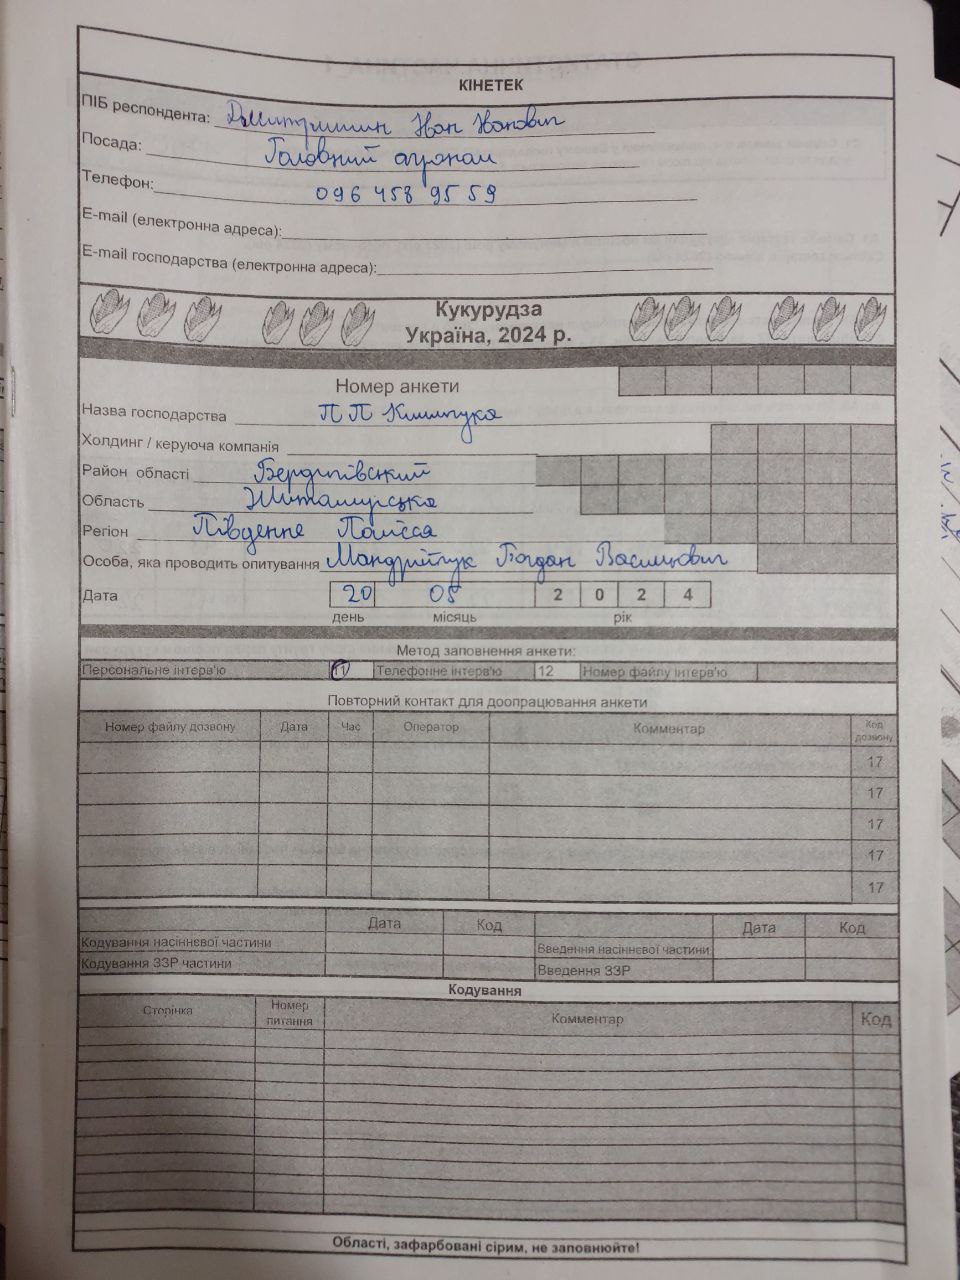 КІНЕТЕК
ПІБ респондента: Дмитришин Іван Іванович
Посада: Головний агроном
Телефон: 096 458 95 59
E-mail (електронна адреса):
E-mail господарства (електронна адреса):
Кукурудза
Україна, 2024 р.
Номер анкети
Назва господарства ПП
Холдинг / керуюча компанія
Район області Бердичівський
Область Житомирська
Регіон Південне Полісся
Особа, яка проводить опитування Мандрійчук Богдан Васильович
Дата 20 05 2 0 2 4
день місяць рік
Метод заповнення анкети:
Персональне інтерв'ю 11 Телефонне інтерв'ю 12 Номер файлу інтерв'ю
Повторний контакт для доопрацювання анкети
Номер файлу дозвону Дата Час Оператор Комментар Код дозвону
17
17
17
17
17
Дата Код Дата Код
Кодування насіннєвої частини Введення насіннєвої частини
Кодування ЗЗР частини Введення ЗЗР
Кодування
Сторінка Номер питання Комментар Код
Області, зафарбовані сірим, не заповнюйте!